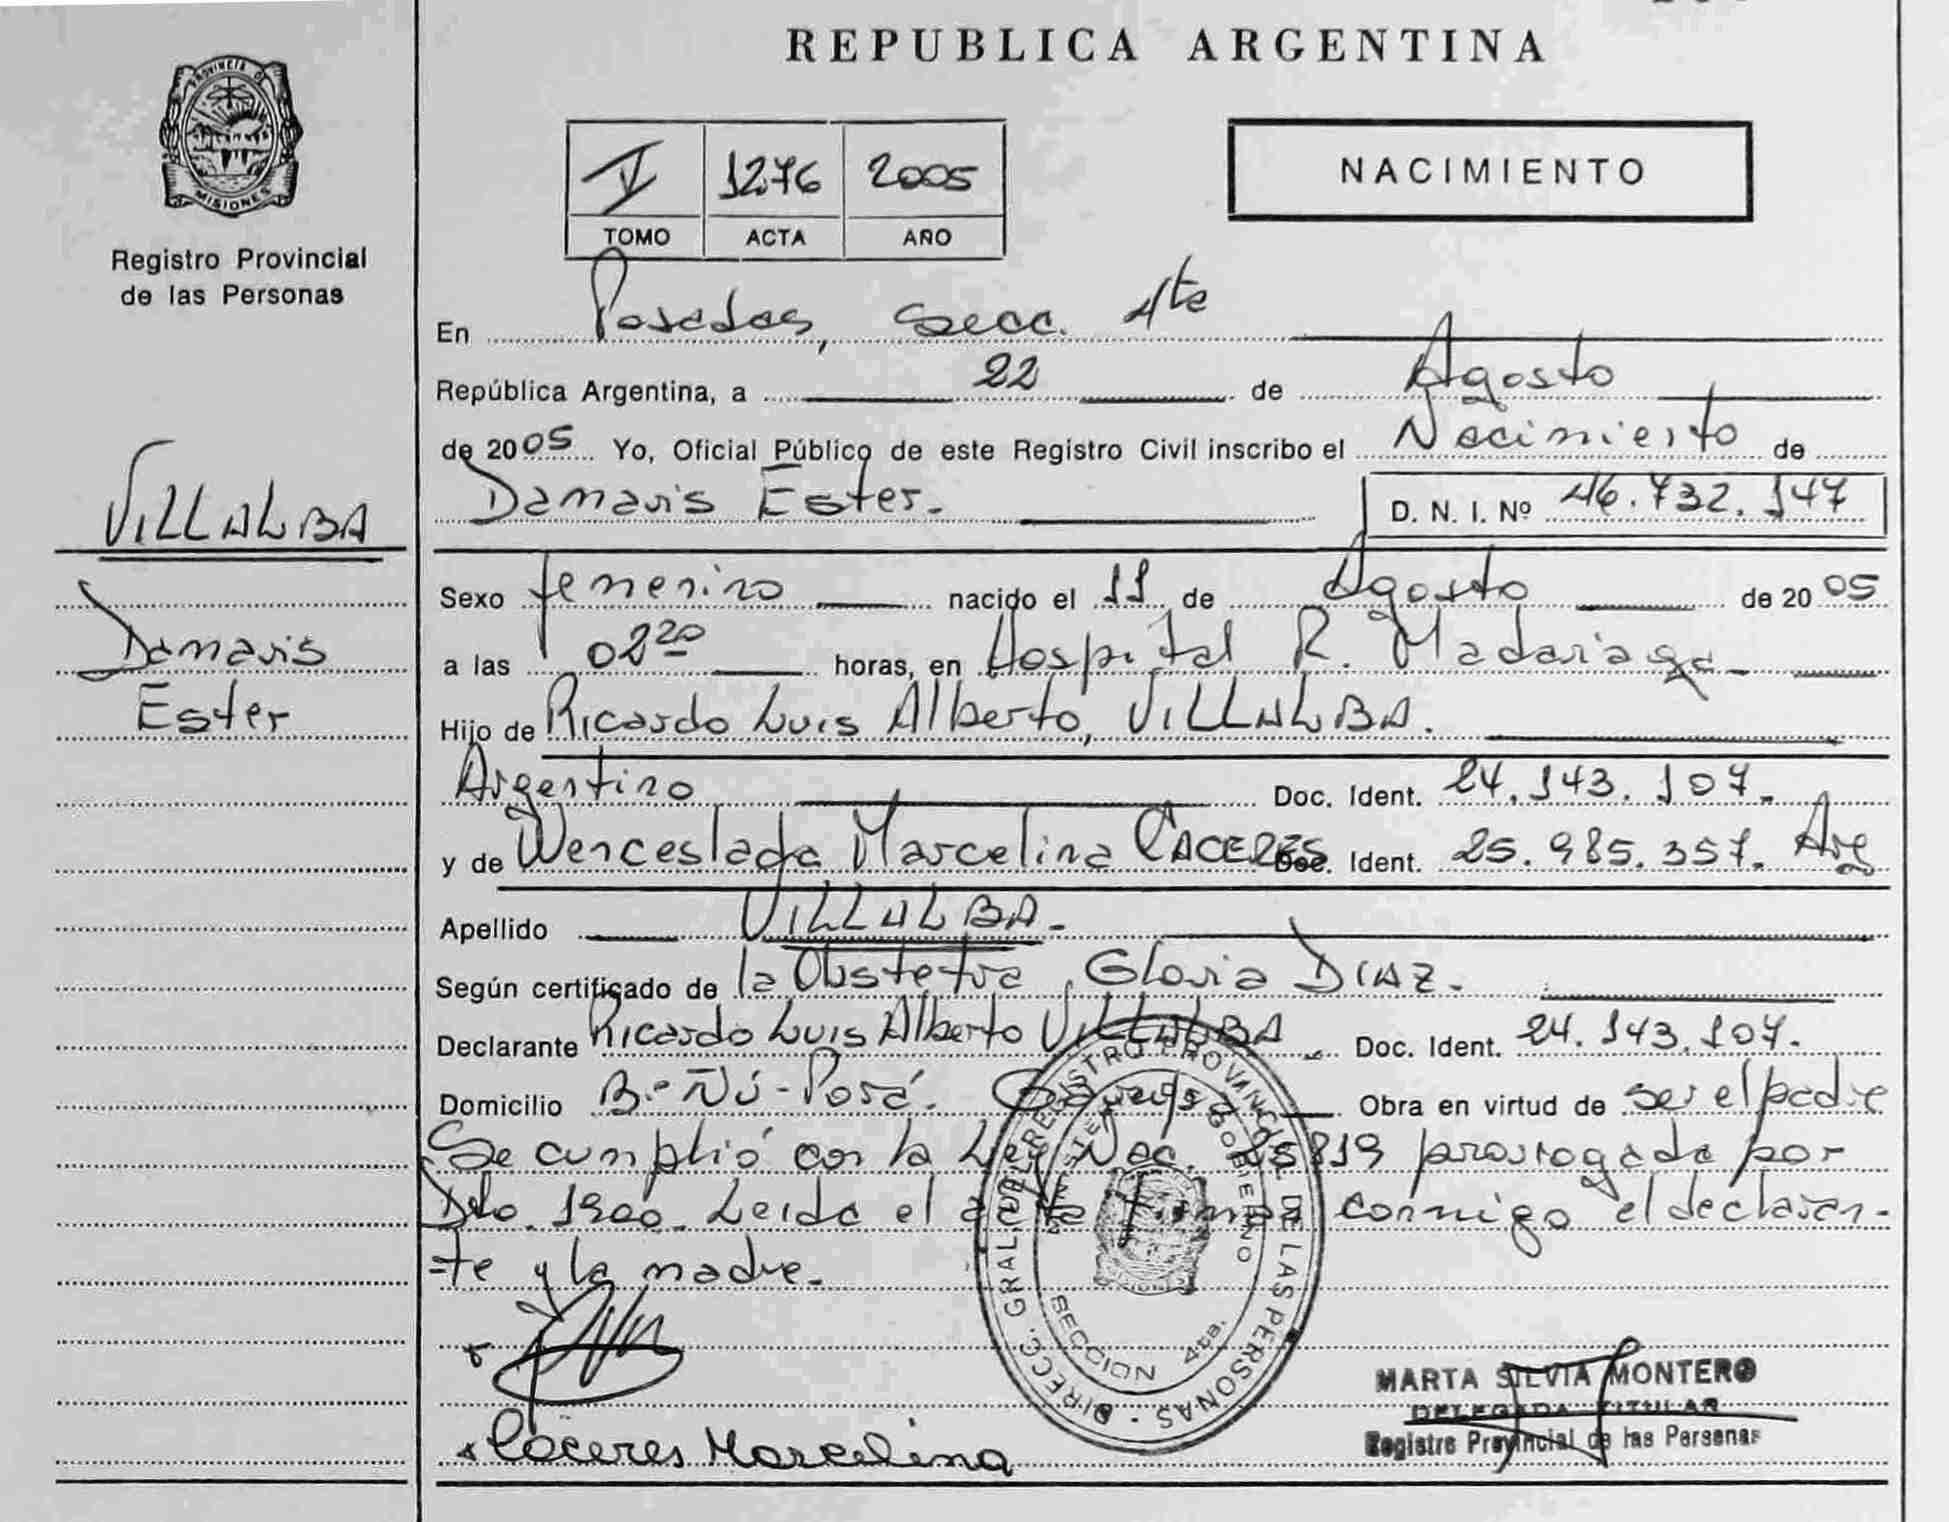 REPUBLICA ARGENTINA
PROVINCIA DE
MISIONES
Registro Provincial
de las Personas
V 1276 2005
TOMO ACTA AÑO
NACIMIENTO
En Posadas, Secc. 4ta
República Argentina, a 22 de Agosto
de 2005 Yo, Oficial Público de este Registro Civil inscribo el Nacimiento de
Damaris Ester. D. N. I. Nº 46.732.147
VILLALBA
Damaris
Ester
Sexo femenino nacido el 11 de Agosto de 2005
a las 02 20 horas, en Hospital R. Madariaga
Hijo de Ricardo Luis Alberto, VILLALBA.
Argentino Doc. Ident. 24.143.107.
y de Wenceslada Marcelina CACERES Doc. Ident. 25.985.357. Arg
Apellido VILLALBA.
Según certificado de la Obstetra, Gloria DIAZ.
Declarante Ricardo Luis Alberto VILLALBA Doc. Ident. 24.143.107.
Domicilio B.º Ñú-Porá. Garupá Obra en virtud de ser el padre
Se cumplió con la Ley Nac. 25819 prorrogada por
Dto. 1900. Leida el acta firman conmigo el declaran-
=te y la madre.
DIRECC. GRAL. DEL REGISTRO PROVINCIAL DE LAS PERSONAS
MINISTERIO GOBIERNO
SECCION 4ta.
Cáceres Marcelina
MARTA SILVIA MONTERO
DELEGADA TITULAR
Registro Provincial de las Personas